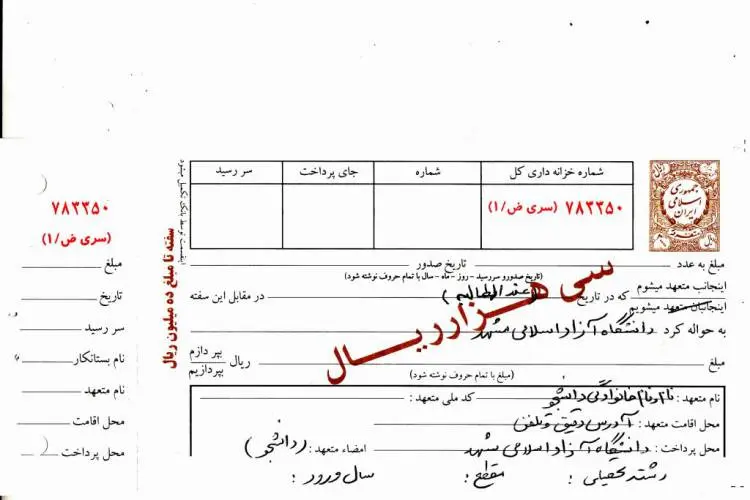 شماره خزانه داری کل
شماره
جای پرداخت
سر رسید
۷۸۳۳۵۰ (سری ض/۱)
جمهوری
اسلامی
ایران
سفته تا مبلغ ده میلیون ریال
۷۸۳۳۵۰
(سری ض/۱)
مبلغ
تاریخ
سر رسید
نام بستانکار
نام متعهد
محل اقامت
محل پرداخت
مبلغ به عدد تاریخ صدور
(تاریخ صدورو سررسید - روز - ماه - سال با تمام حروف نوشته شود)
اینجانب متعهد میشوم
اینجانبان متعهد میشویم
که در تاریخ (عندالمطالبه) در مقابل این سفته
به حواله کرد دانشگاه آزاد اسلامی مشهد
سی هزار ریال
مبلغ ریال بپردازم
بپردازیم
(مبلغ با تمام حروف نوشته شود)
نام متعهد : نام و نام خانوادگی دانشجو کد ملی متعهد :
محل اقامت متعهد : آدرس دقیق و تلفن
محل پرداخت : دانشگاه آزاد اسلامی مشهد امضاء متعهد : (دانشجو)
رشته تحصیلی : مقطع : سال ورود :